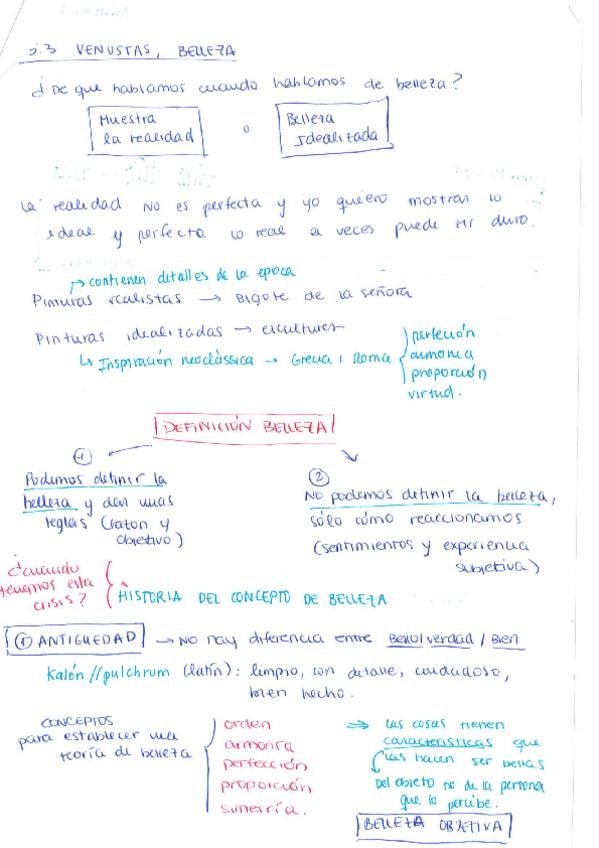 5.3 VENUSTAS, BELLEZA
¿De que hablamos cuando hablamos de belleza?
Muestra
la realidad
o
Belleza
Idealizada
La realidad no es perfecta y yo quiero mostrar lo
ideal y perfecto. Lo real a veces puede ser duro.
↳ contienen detalles de la epoca
Pinturas realistas → Bigote de la señora
Pinturas idealizadas → esculturas
↳ Inspiración neoclàssica → Grecia i Roma
perfección
armonia
proporción
virtud.
DEFINICIÓN BELLEZA
①
Podemos definir la
belleza y dar unas
reglas (razon y
objetivo)
②
No podemos definir la belleza,
sólo cómo reaccionamos
(sentimientos y experiencia
subjetiva)
¿cuando
tenemos esta
crisis?
HISTORIA DEL CONCEPTO DE BELLEZA
① ANTIGUEDAD → No hay diferencia entre Bello/verdad/Bien
Kalón//pulchrum (latín): limpio, con detalle, cuidadoso,
bien hecho.
CONCEPTOS
para establecer una
teoría de belleza
orden
armonía
perfección
proporción
simetría.
⇒ Las cosas tienen
características que
las hacen ser bellas
Del objeto no de la persona
que lo percibe.
BELLEZA OBJETIVA